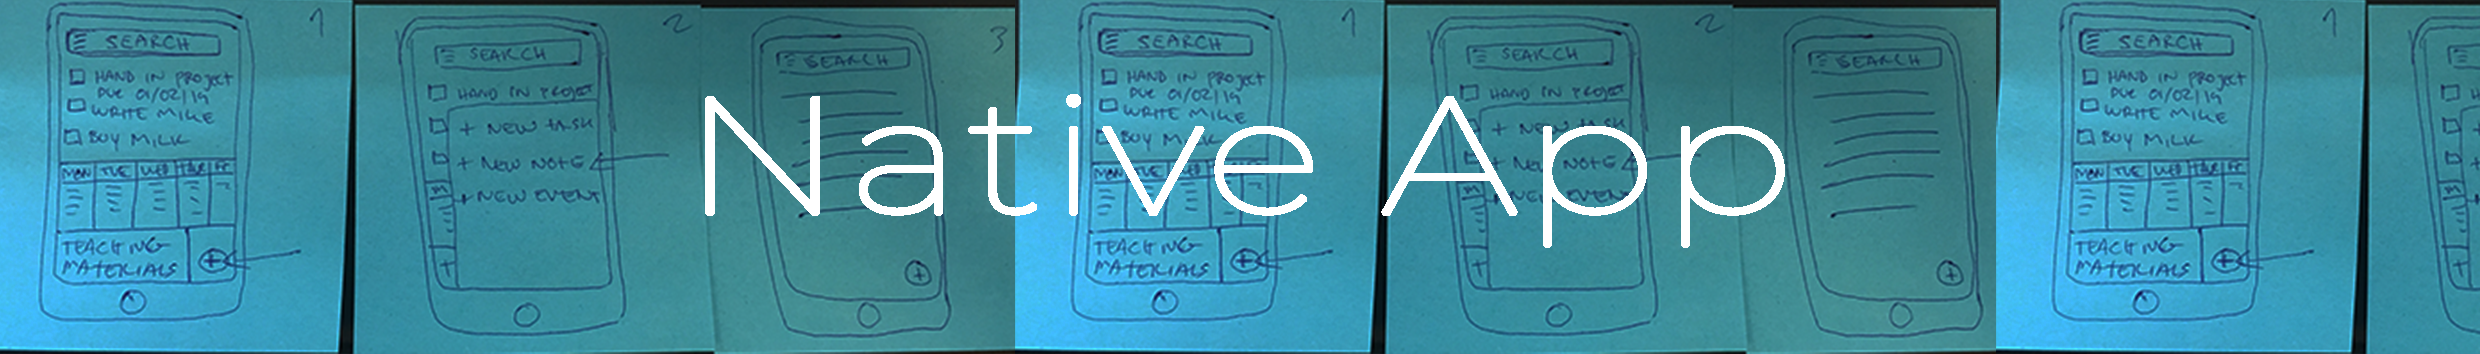 1
SEARCH
HAND IN PROJECT
DUE 01/02/19
WRITE MIKE
BUY MILK
MON TUE WED THUR FR
TEACHING
MATERIALS
+
2
SEARCH
HAND IN PROJECT
+ NEW TASK
+ NEW NOTE
M
+ NEW EVENT
T
3
SEARCH
+
1
SEARCH
HAND IN PROJECT
DUE 01/02/19
WRITE MIKE
BUY MILK
MON TUE WED
TEACHING
MATERIALS
+
2
SEARCH
HAND IN PROJECT
+ NEW TASK
+ NEW NOTE
M
+ NEW EVENT
T
SEARCH
+
1
SEARCH
HAND IN PROJECT
DUE 01/02/19
WRITE MIKE
BUY MILK
MON TUE WED THUR FR
TEACHING
MATERIALS
+
H
M
T
Native App